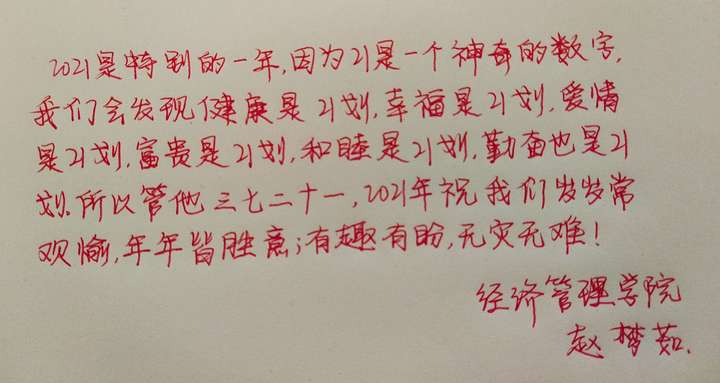 2021是特别的一年,因为21是一个神奇的数字,
我们会发现健康是21划,幸福是21划,爱情
是21划,富贵是21划,和睦是21划,勤奋也是21
划.所以管他三七二十一,2021年祝我们岁岁常
欢愉,年年皆胜意;有趣有盼,无灾无难!
经济管理学院
赵梦茹.